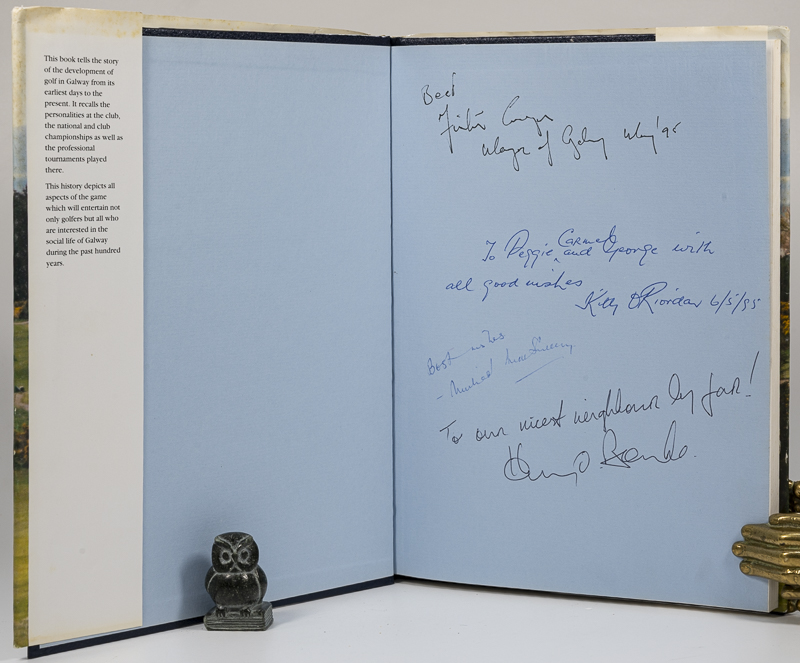 This book tells the story
of the development of
golf in Galway from its
earliest days to the
present. It recalls the
personalities at the club,
the national and club
championships as well as
the professional
tournaments played
there.
This history depicts all
aspects of the game
which will entertain not
only golfers but all who
are interested in the
social life of Galway
during the past hundred
years.
Best
Mayor of Galway May '95
Carmel
To Peggie, and George with
all good wishes
Kitty O'Riordan 6/5/95
Best wishes
To our nicest neighbour by far!